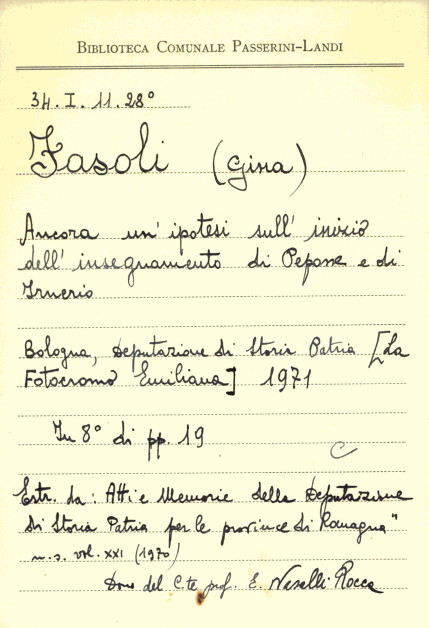 BIBLIOTECA COMUNALE PASSERINI-LANDI
34. I. 11. 28°
Fasoli (Gina)
Ancora un' ipotesi sull' inizio
dell' insegnamento di Pepone e di
Irnerio
Bologna, Deputazione di Storia Patria [La
Fotocromo Emiliana] 1971
In 8° di pp. 19
C
Estr. da: Atti e Memorie della Deputazione
di Storia Patria per le province di Romagna"
n.s. vol. XXI (1970)
Dono del C.te prof. E. Nasalli Rocca